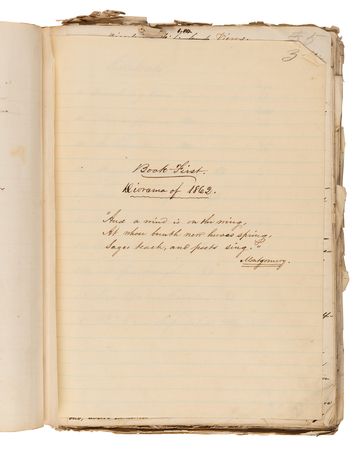 Views.
3
Book First.
Diorama of 1862.
"And a wind is on the wing,
At whose breath new heroes spring,
Sages teach, and poets sing."
Montgomery.